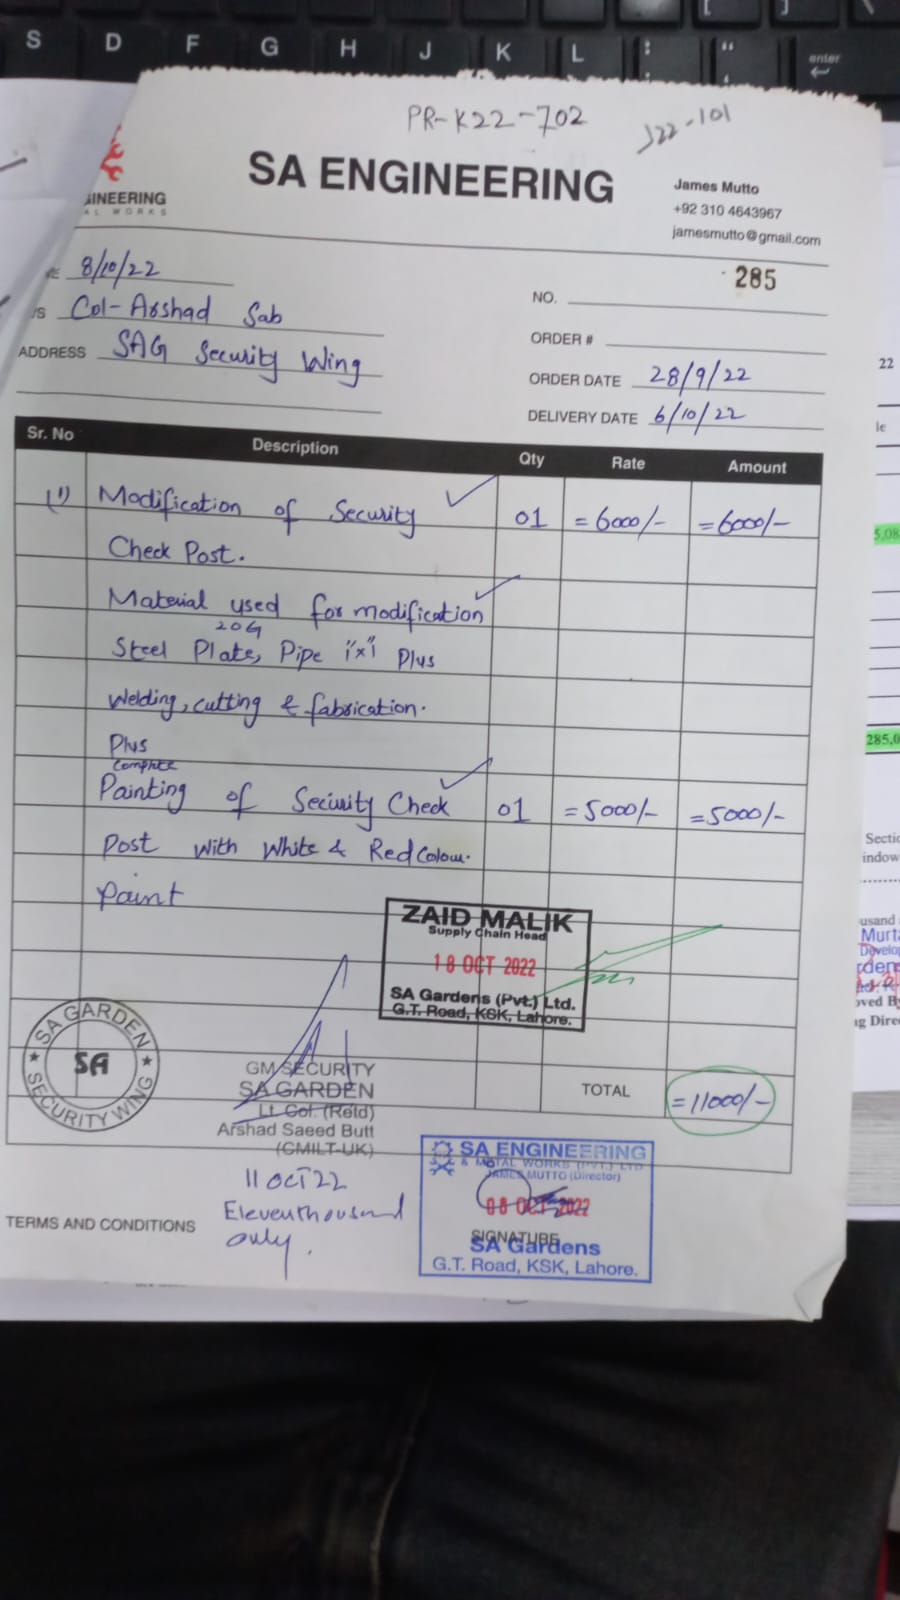 S D F G H J K L : ; " ' enter
PR-K22-702
J22-101
SA ENGINEERING
James Mutto
+92 310 4643967
jamesmutto@gmail.com
8/10/22
NO. 285
Col-Arshad Sab
ORDER #
ADDRESS SAG Security Wing
ORDER DATE 28/9/22
DELIVERY DATE 6/10/22
Sr. No Description Qty Rate Amount
(1) Modification of Security 01 =6000/- =6000/-
Check Post.
Material used for modification
20G
Steel Plate, Pipe 1"x1" Plus
Welding, cutting & fabrication.
Plus
Complete
Painting of Security Check 01 =5000/- =5000/-
Post with White & Red Colour.
Paint
ZAID MALIK
Supply Chain Head
18 OCT 2022
SA Gardens (Pvt.) Ltd.
G.T. Road, KSK, Lahore.
SA GARDEN
SA
SECURITY WING
GM SECURITY
SA GARDEN
Lt. Col. (Retd)
Arshad Saeed Butt
(CMILT-UK)
TOTAL =11000/-
11 OCT 22
Eleven thousand
only.
TERMS AND CONDITIONS
SA ENGINEERING
& METAL WORKS (PVT.) LTD
JAMES MUTTO (Director)
08 OCT 2022
SIGNATURE
SA Gardens
G.T. Road, KSK, Lahore.